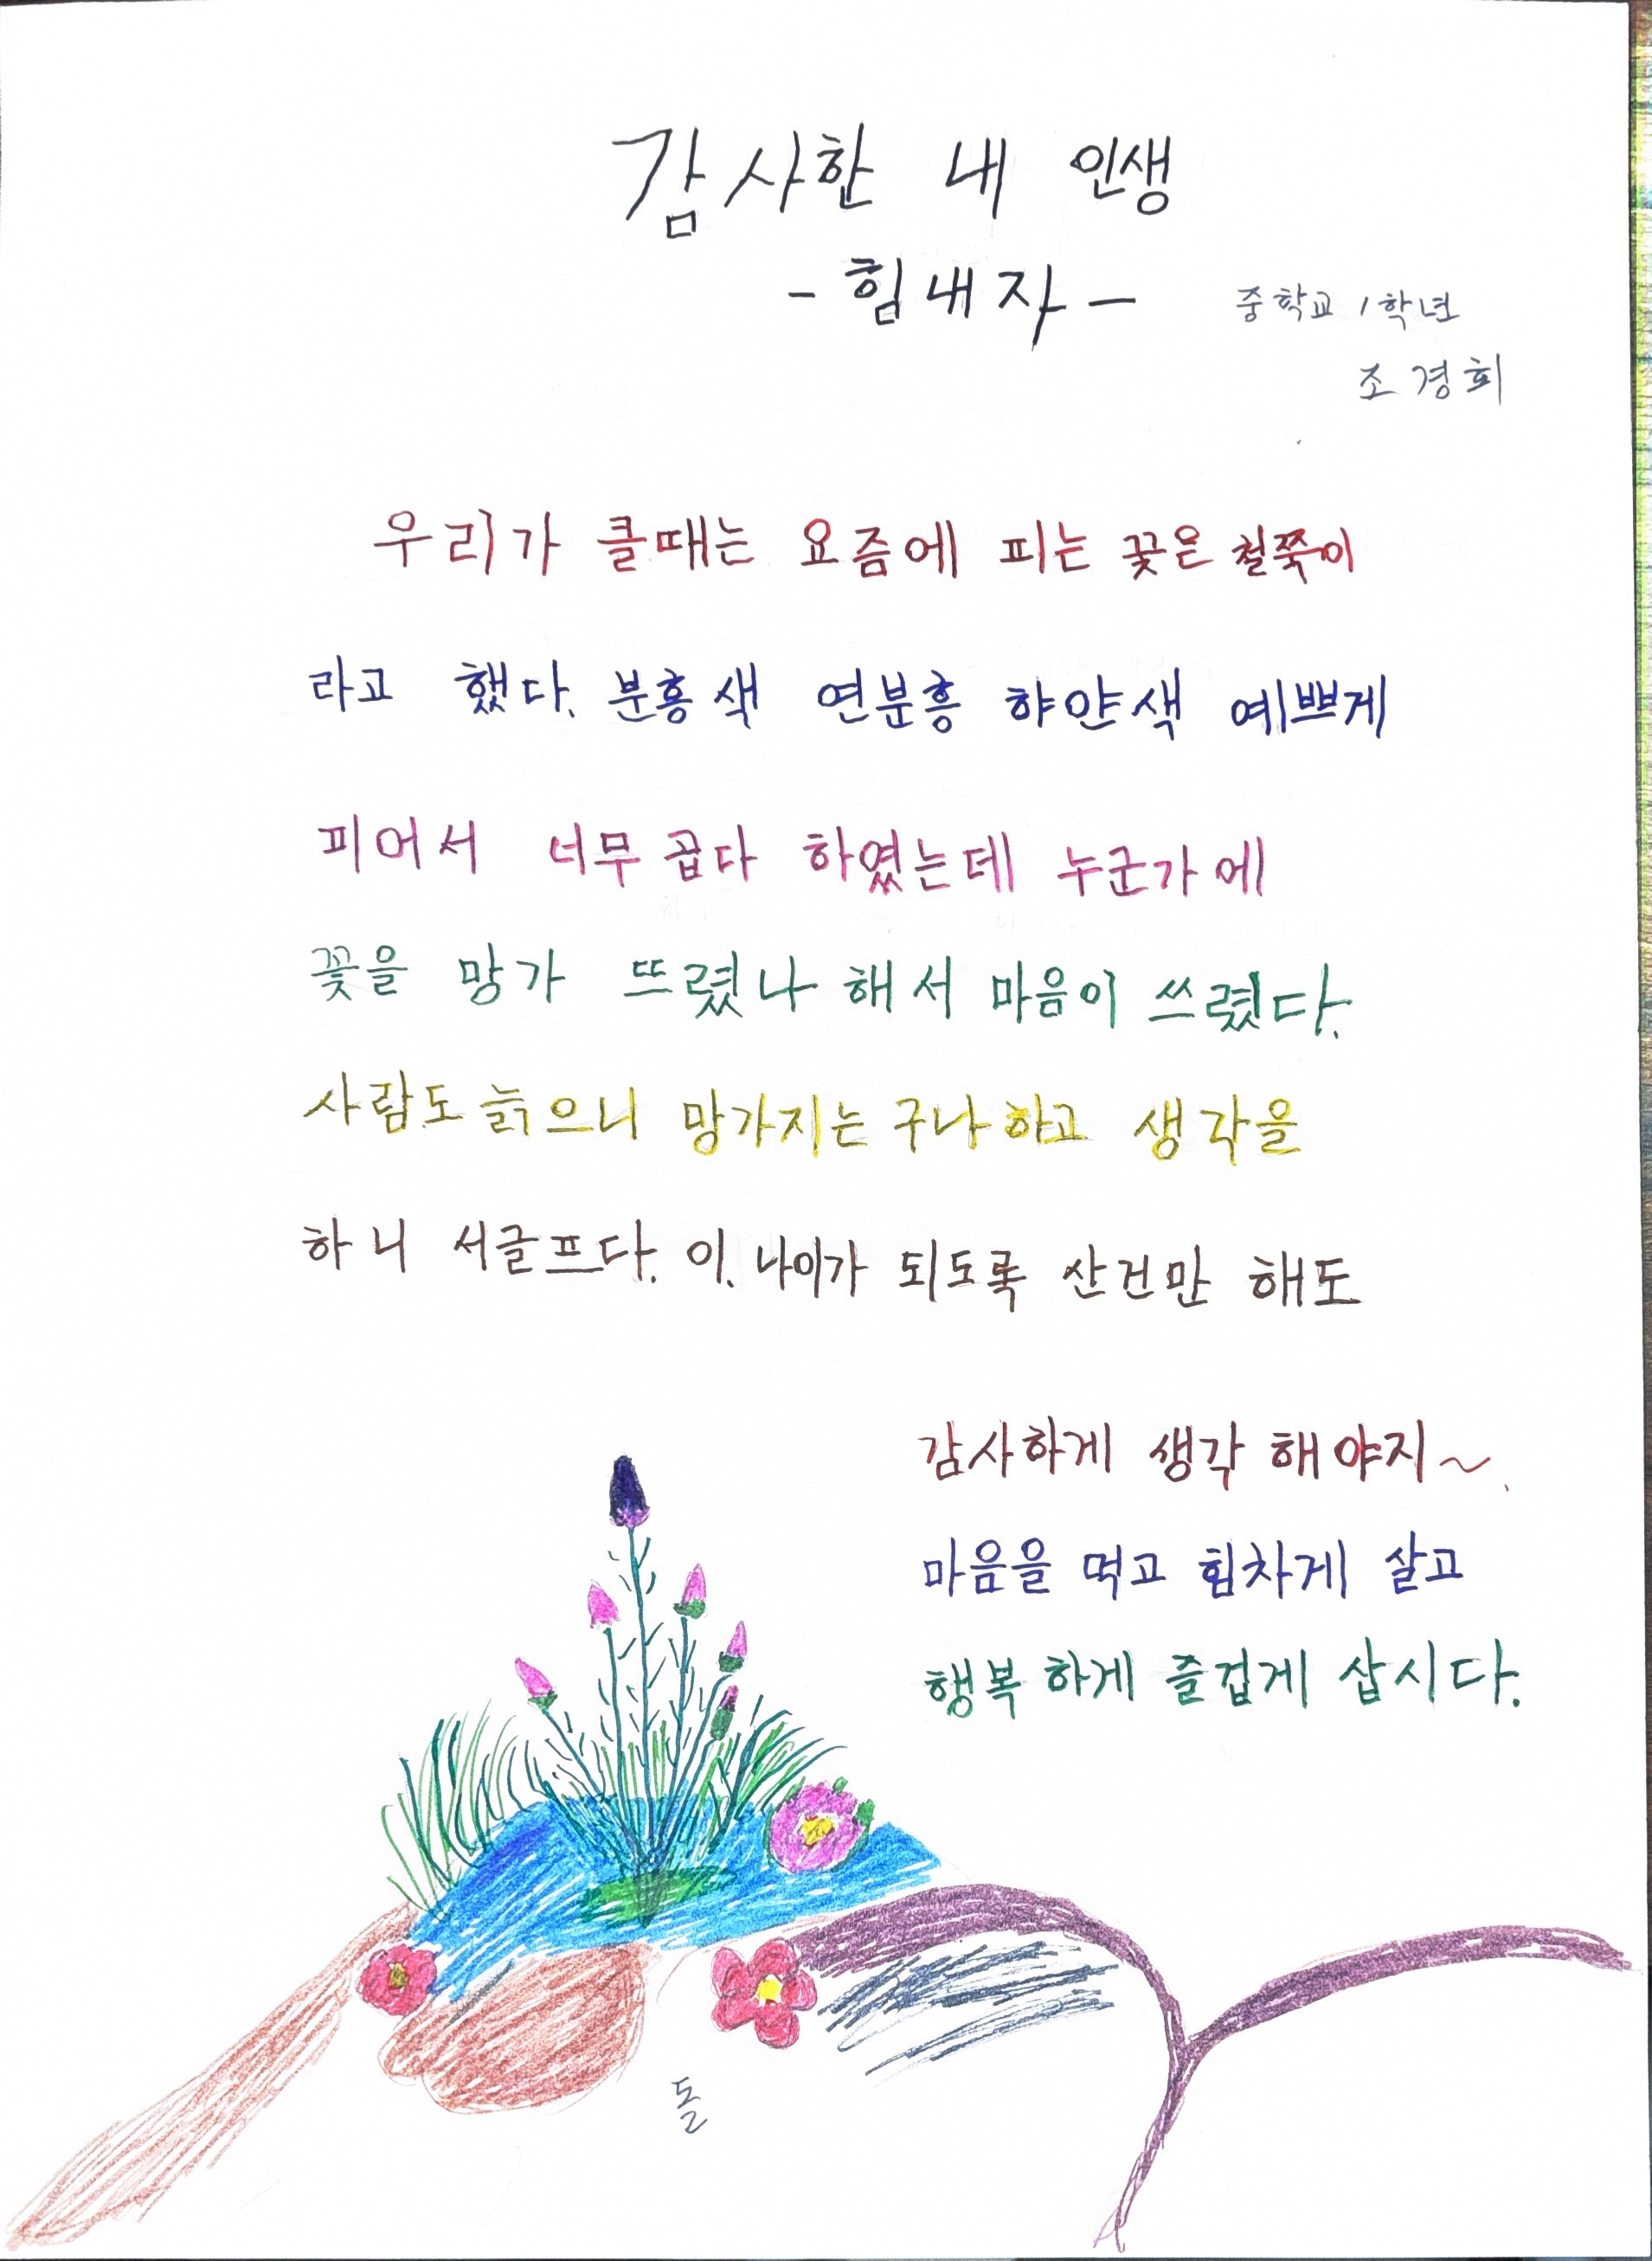 감사한 내 인생
- 힘내자 -
중학교 1학년
조경희
우리가 클때는 요즘에 피는 꽃은 철쭉이
라고 했다. 분홍색 연분홍 햐얀색 예쁘게
피어서 너무 곱다 하였는데 누군가에
꽃을 망가 뜨렸나 해서 마음이 쓰렸다.
사람도 늙으니 망가지는 구나 하고 생각을
하니 서글프다. 이. 나이가 되도록 산건만 해도
감사하게 생각 해야지~.
마음을 먹고 힘차게 살고
행복 하게 즐겁게 삽시다.
돌